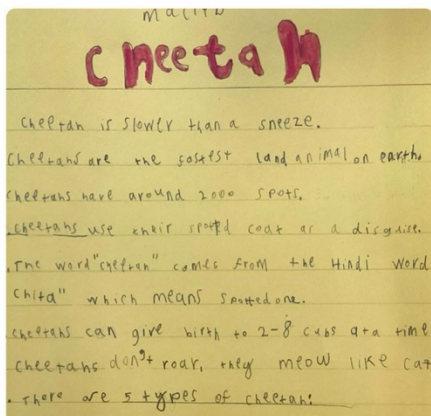 Cheetah
Cheetah is slower than a sneeze.
Cheetahs are the fastest land animal on earth.
Cheetahs have around 2000 spots.
.Cheetahs use their spotted coat as a disguise.
.The word "cheetah" comes from the Hindi word
Chita" which means spotted one.
Cheetahs can give birth to 2-8 cubs at a time
Cheetahs don't roar, they meow like cat
. There are 5 types of cheetah: